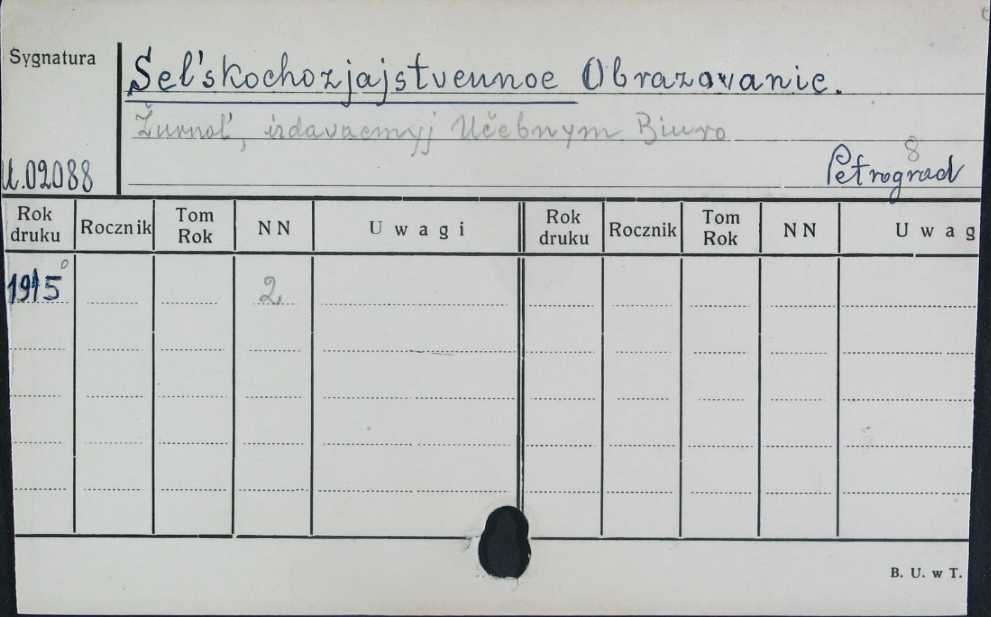 Sygnatura
Sel'skochozjajstvennoe Obrazovanie.
Žurnal', izdavaemyj Učebnym Biuro
8
U.02088
Petrograd
Rok druku Rocznik Tom Rok NN Uwagi Rok druku Rocznik Tom Rok NN Uwag
1915 2
B. U. w T.